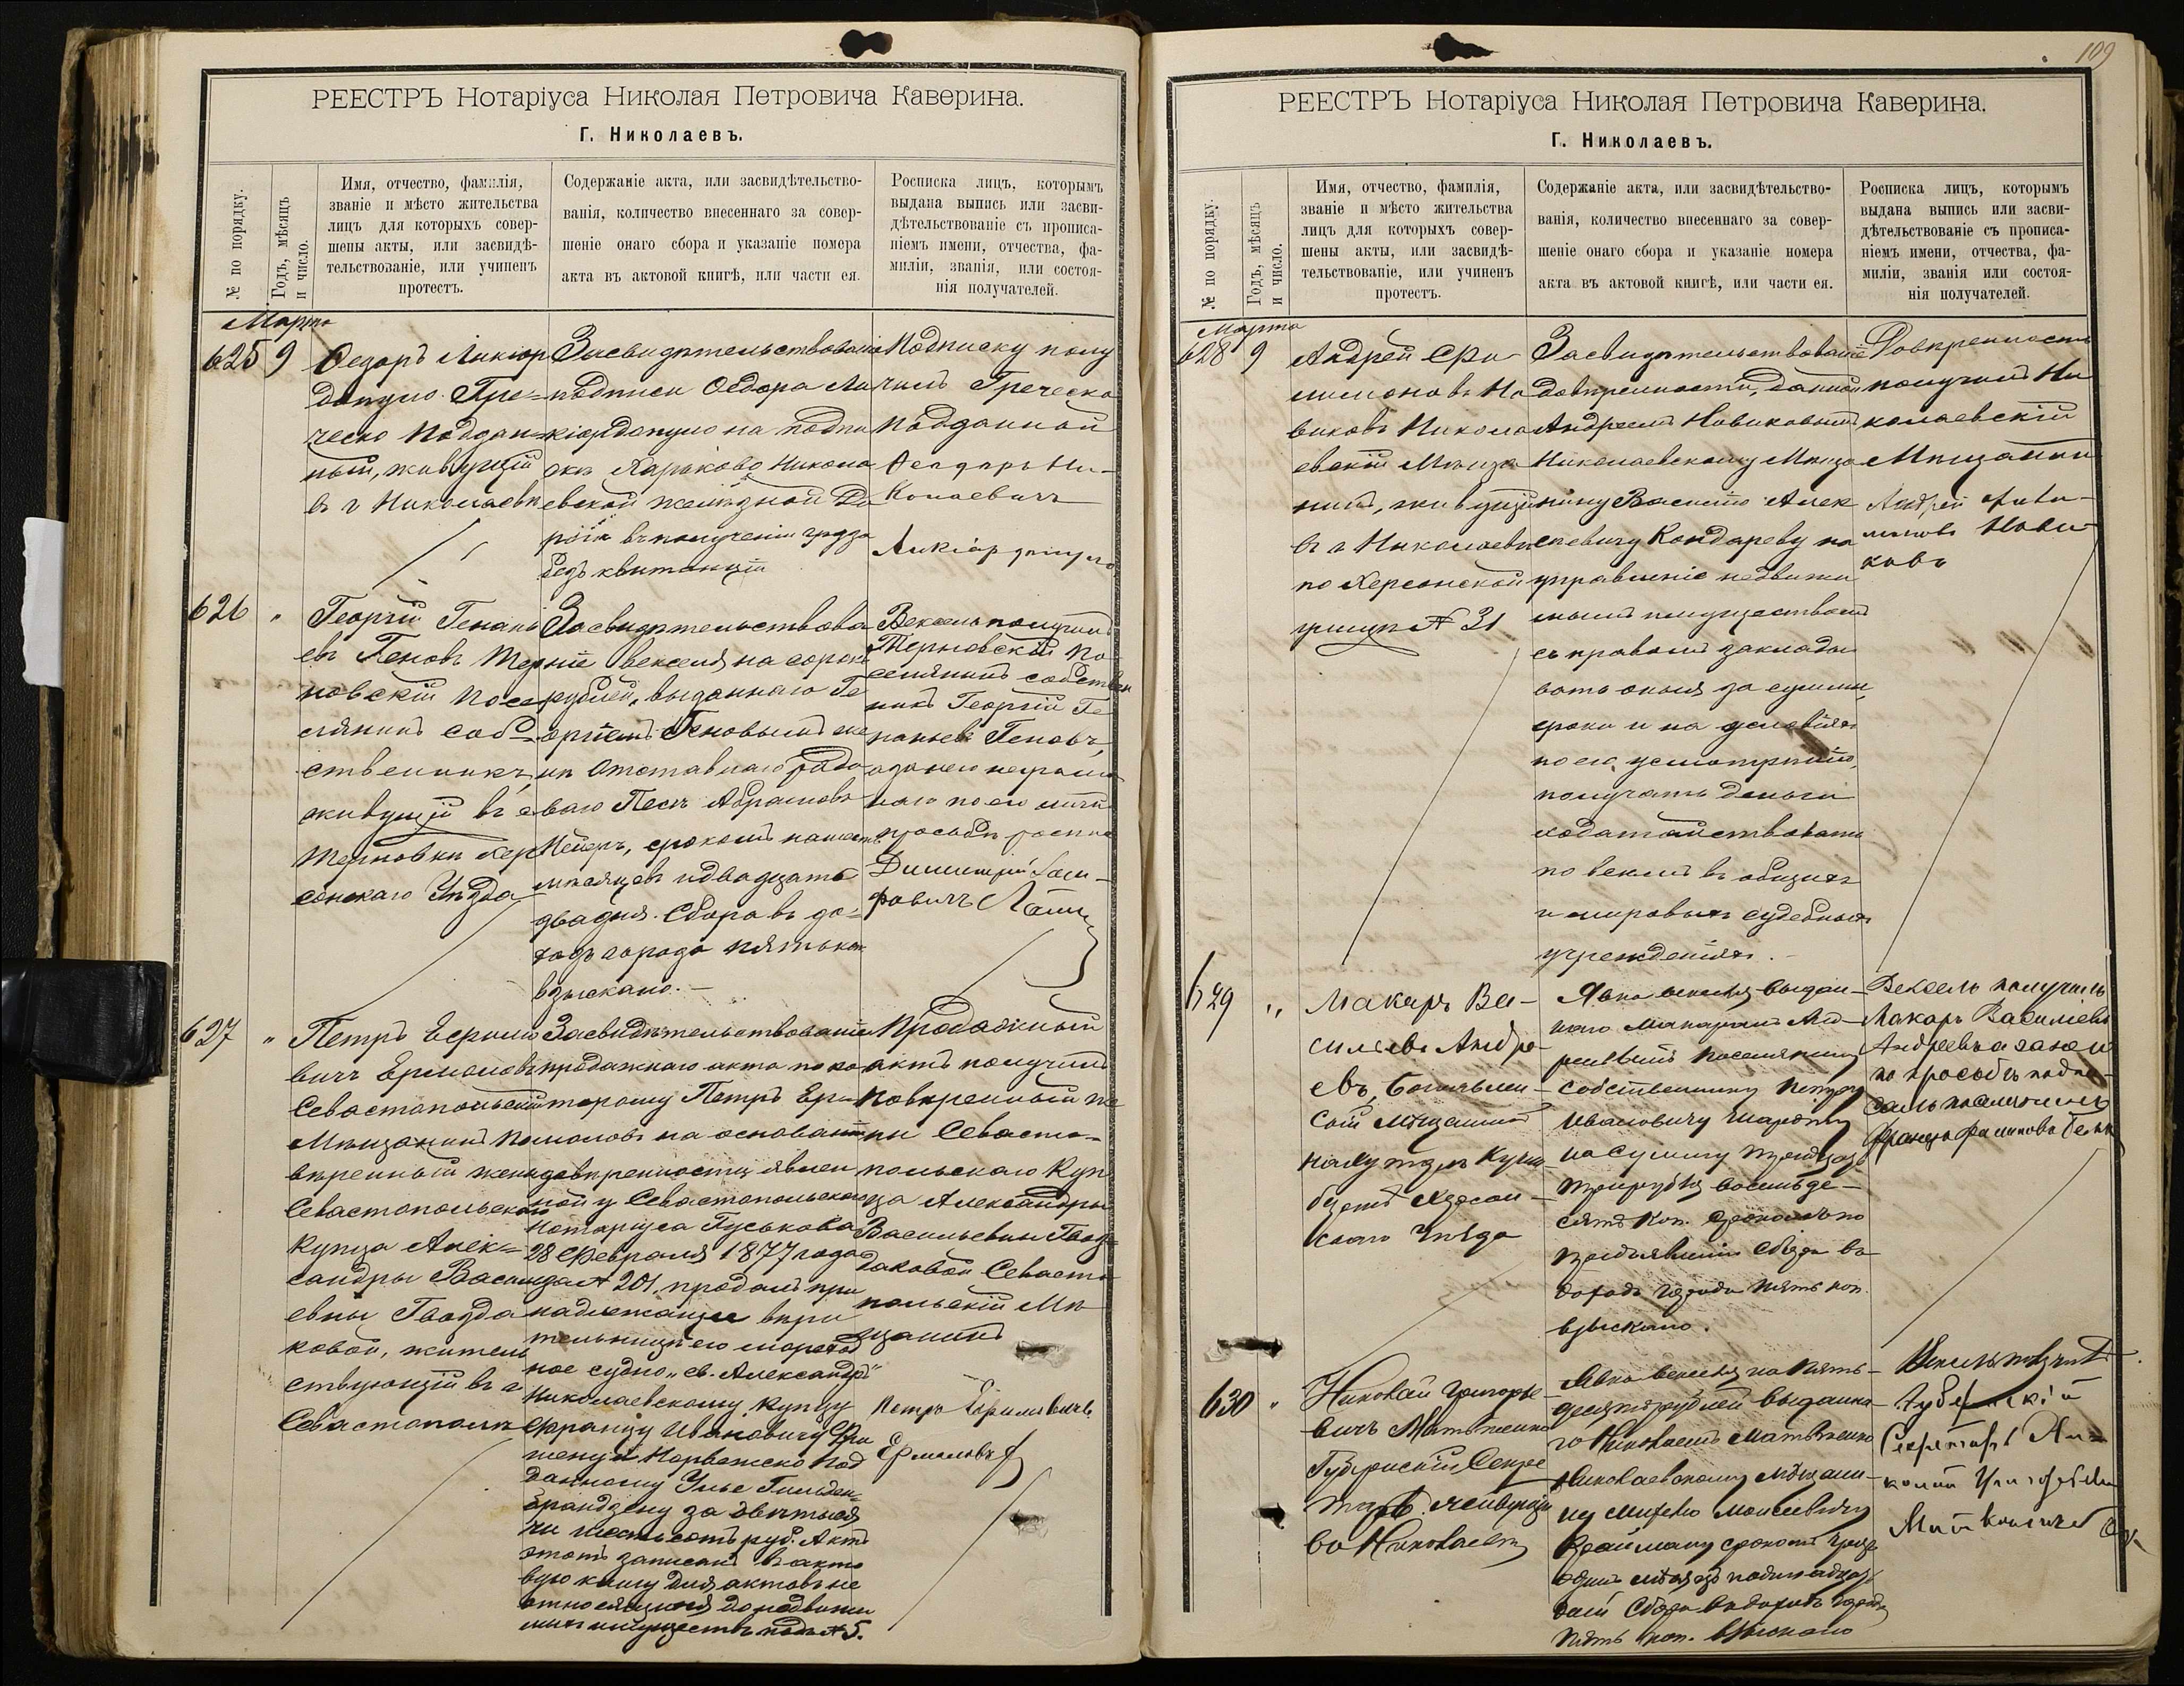 РЕЕСТРЪ Нотаріуса Николая Петровича Каверина.
Г. Николаевъ.
№ по порядку.
Годъ, мѣсяцъ
и число.
Имя, отчество, фамилія,
званіе и мѣсто жительства
лицъ для которыхъ совер-
шены акты, или засвидѣ-
тельствованіе, или учиненъ
протестъ.
Содержаніе акта, или засвидѣтельство-
ванія, количество внесеннаго за совер-
шеніе онаго сбора и указаніе номера
акта въ актовой книгѣ, или части ея.
Росписка лицъ, которымъ
выдана выпись или засви-
дѣтельствованіе съ прописа-
ніемъ имени, отчества, фа-
миліи, званія, или состоя-
нія получателей.
Марта
625 9
Ѳедоръ Ликіор
допуло Гре-
ческо Поддан-
ный, живущій
въ г Николаевѣ
Засвидѣтельствованіе
подписи Ѳедора Ли
кіордопуло на подпи
скѣ Харьково Никола
евской желѣзной До
роги въ полученіи груза
безъ квитанціи
Подписку полу
чилъ Греческо
подданной
Ѳеодоръ Ни-
колаевичъ
Ликіардопуло
626 "
Георгій Генань
евъ Геновъ Тер
новскій Посе
лянинъ соб-
ственникъ,
живущій въ с
Терновкѣ Хер
сонскаго Уѣзда
Засвидѣтельствова
ніе векселя на сорокъ
рублей, выданнаго Ге
оргіемъ Геновымъ же
нѣ Отставнаго рядо
ваго Песѣ Абрамовѣ
Мейеръ, срокомъ на шесть
мѣсяцевъ и двадцать
два дня. Сбора въ до-
ходъ города пять коп
взыскано. -
Вексель получилъ
Терновскій По-
селянинъ собствен
никъ Георгій Ге
наньевъ Геновъ,
а за него неграмот
наго по его личной
просьбѣ росписа
Дмитрій
627 "
Петръ Ефимо
вичъ Ермоловъ
Севастопольскій
Мѣщанинъ По
вѣренный жены
Севастопольскаго
купца Алек-
сандры Василь
евны Гвозда
ковой, житель
ствующій въ г
Севастополѣ
Засвидѣтельствованіе
продажнаго акта по ко
торому Петръ Ер-
моловъ на основаніи
довѣренности явлен
ной у Севастопольскаго
Нотаріуса Гуськова
28 Февраля 1877 года
за № 201, продалъ при
надлежащее вѣри
тельницѣ его мореход
ное судно „св. Александръ“
Николаевскому купцу
Францу Ивановичу Фри
шену и Норвежско Под
данному Уье Гильден-
брандзену за двѣ тыся
чи шестьсотъ руб. Актъ
этотъ записанъ въ акто
вую книгу для актовъ не
относящихся до недвижи
мыхъ имуществъ подъ № 5.
Продажный
актъ получилъ
Повѣренный же
ны Севасто-
польскаго Куп
ца Александры
Васильевны Гвоз
даковой Севасто
польскій Мѣ
щанинъ
Петръ Ефимовичъ
Ермоловъ
109
РЕЕСТРЪ Нотаріуса Николая Петровича Каверина.
Г. Николаевъ.
№ по порядку.
Годъ, мѣсяцъ
и число.
Имя, отчество, фамилія,
званіе и мѣсто жительства
лицъ для которыхъ совер-
шены акты, или засвидѣ-
тельствованіе, или учиненъ
протестъ.
Содержаніе акта, или засвидѣтельство-
ванія, количество внесеннаго за совер-
шеніе онаго сбора и указаніе номера
акта въ актовой книгѣ, или части ея.
Росписка лицъ, которымъ
выдана выпись или засви-
дѣтельствованіе съ прописа-
ніемъ имени, отчества, фа-
миліи, званія или состоя-
нія получателей.
Марта
628 9
Андрей Фи-
лимоновъ Но
виковъ Никола
евскій Мѣща
нинъ, живущій
въ г Николаевѣ
по Херсонской
улицѣ № 31
Засвидѣтельствованіе
довѣренности, данной
Андреемъ Новиковымъ
Николаевскому Мѣща
нину Василію Алек
сѣевичу Кондареву на
управленіе недвижи
мымъ имуществомъ
съ правомъ заклады
вать оныя за суммы,
сроки и на условіяхъ
по его усмотрѣнію,
получать деньги
ходатайствовать
по всемъ въ общихъ
и мировыхъ судебныхъ
учрежденіяхъ. -
Довѣренность
получилъ Ни
колаевскій
Мѣщанинъ
Андрей Фили-
моновъ Нови-
ковъ
629 "
Макаръ Ва-
сильевъ Андре-
евъ, Богоявлен-
скій мѣщанинъ
Херсон-
скаго Уѣзда
Явка векселя выдан-
наго Макаромъ Анд-
реевымъ поселянину
собственнику Петру
Ивановичу
на сумму тридцать
три рубля восемьде-
сятъ коп. срокомъ по
предъявленіи Сбора въ
доходъ города пять коп.
взыскано.
Вексель получилъ
Макаръ Васильевъ
Андреевъ а за него
по просьбѣ подпи-
салъ поселянинъ
Францъ
630 "
Николай Григорье
вичъ Матвѣенко
Губернскій Секре
тарь. живущій
въ Николаевѣ
Явка векселя на пять-
десятъ рублей выданна
го Николаемъ Матвѣенко
Николаевскому мѣщани-
ну Моисеевичу
Крайману срокомъ чрезъ
одинъ мѣсяцъ
Сбора въ доходъ города
пять коп. взыскано
Вексель получилъ
Губернскій
Секретарь Ни-
колай Григорьев